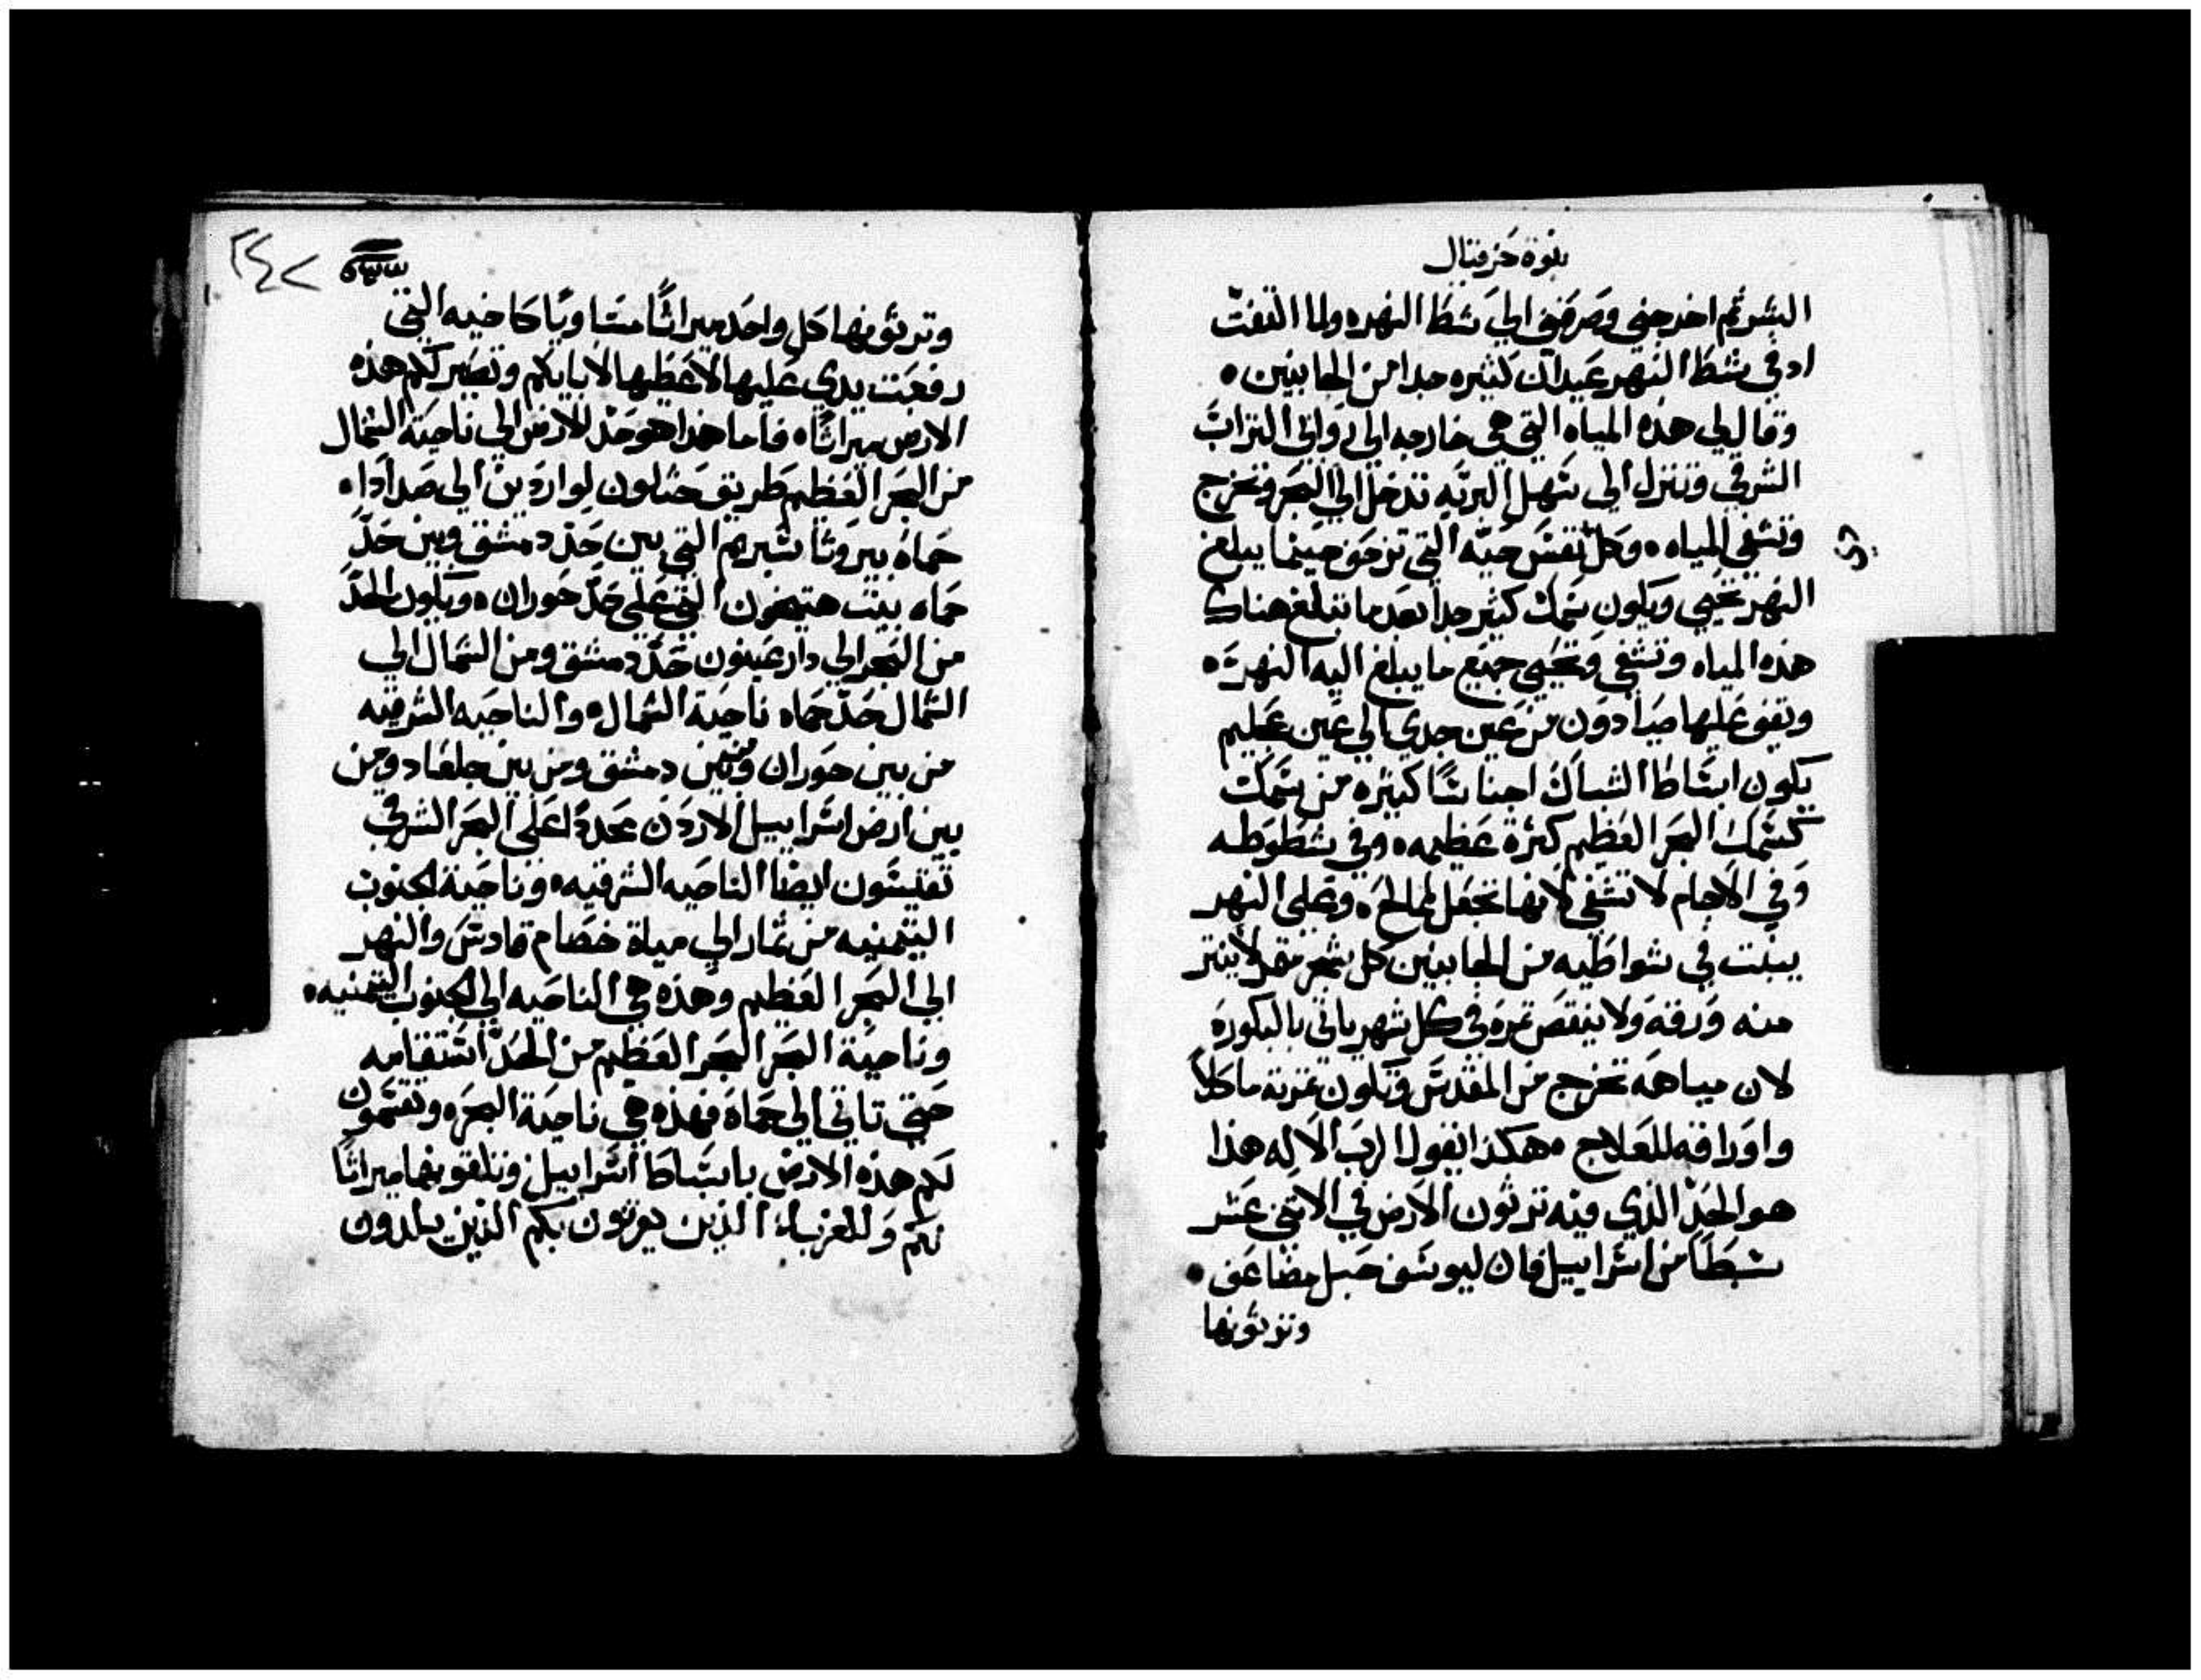 نبوة حزقيال
البشر ثم اخرجني وصرفني الي شط النهر ولما التفت
اد في شط النهر عيدان كثيره جدا من الجانبين
وقال لي هذه المياه التي هي خارجه الي روابي التراب
الشرقي وتنزل الي سهل البريه تدخل الي البحر وتخرج
وتشفي المياه وكل نفس حيه التي تزحف حيثما يبلغ
النهر تحيي ويكون سمك كثير جدا بعد ما تبلغ هناك
هذه المياه وتشفي وتحيي جميع ما يبلغ اليه النهر
ويقف عليها صيادون من عين جدي الي عين عجليم
يكون ابساط الشباك اجناسًا كثيره من سمك
كسمك البحر العظيم كثرة عظيمه وفي شطوطه
وفي الاجام لا تشفي لانها تجعل لمالح وعلي النهر
ينبت في شواطيه من الجانبين كل شجر مثمر لا ينتر
منه ورقه ولا ينقص ثمره في كل شهر ياتي بالبكوره
لان مياهه تخرج من المقدس وتكون ثمرته ماكلاً
واوراقه للعلاج هكذا يقول الرب الاله هذا
هو الحد الذي فيه ترثون الارض في الاثني عشر
سبطًا من اسراييل فان ليوسف حبل مضاعف
وترثونها
٢٤٧
وترثونها كل واحد ميراثًا متساويًا كاخيه التي
رفعت يدي عليها لاعطيها لابايكم وتصير لكم هذه
الارض ميراثًا فاما هذا هو حد للارض الي ناحية الشمال
من البحر العظيم طريق حثلون لواردين الي صدادا
حماه بيروثا سبريم التي بين حد دمشق وبين حد
حماه بيت هتيخون التي علي حد حوران ويكون الحد
من البحر الي دار عينون حد دمشق ومن الشمال الي
الشمال حد حماه ناحية الشمال والناحيه الشرقيه
من بين حوران ومن بين دمشق ومن بين جلعاد ومن
بين ارض اسراييل الاردن محددًا علي البحر الشرقي
تقيسون ايضا الناحيه الشرقيه وناحية الجنوب
التيمنيه من تمار الي مياة خصام قادس والنهر
الي البحر العظيم وهذه هي الناحيه الي الجنوب التيمنيه
وناحية البحر البحر العظيم من الحد استقامه
حتي تاتي الي حماه فهذه هي ناحية البحر وتقسمون
لكم هذه الارض باسباط اسراييل وتلقونها ميراثًا
لكم وللغرباء الذين يرثون بكم الذين يلدون